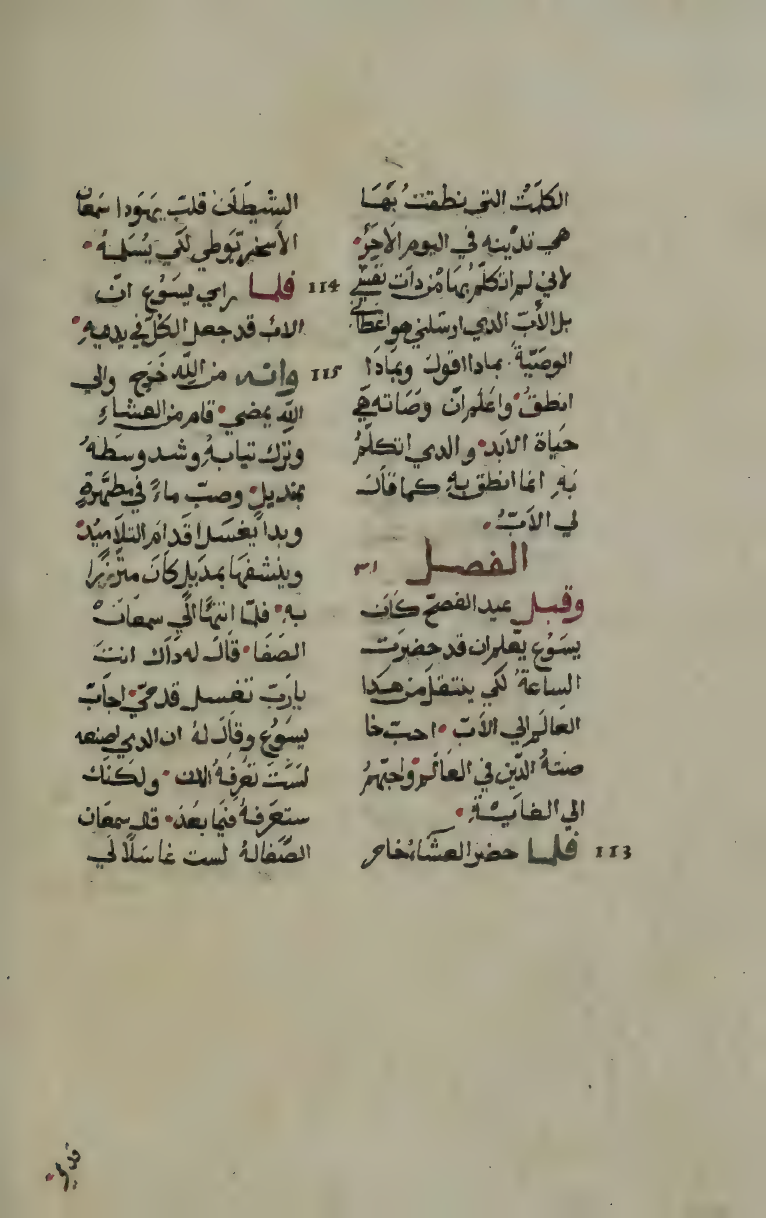 الكلمت التي نطقت بها
هي تدينه في اليوم الاخر
لاني لم اتكلم بها من دات نفسي
بل الأب الدي ارسلني هو اعطاني
الوصية بمادا اقول وبمادا
انطق واعلم ان وصاته هي
حياة الابد والدي اتكلم
به انما انطق به كما قال
لي الاب
الفصل ٣١
وقبل عيد الفصح كان
يسوع يعلم ان قد حضرت
الساعة لكي ينتقل من هدا
العالم الي الاب احب خا
صته الدين في العالم واحبهم
الي الغاية
113 فلما حضر العشاء خامر
الشيطان قلب يهودا سمعان
الأسخريوطي لكي يسلمه
114 فلما راي يسوع ان
الاب قد جعل الكل في يديه
115 وانه من الله خرج والي
الله يمضي قام من العشاء
وترك تيابه وشد وسطه
بمنديل وصب ماء في مطهرة
وبدا يغسل اقدام التلاميد
وينشفها بمنديل كان متزرا
به فلما انتها الي سمعان
الصفا قال له داك انت
يارب تغسل قدمي اجاب
يسوع وقال له ان الدي اصنعه
لست تعرفه الان ولكنك
ستعرفه فيما بعد قال سمعان
الصفا له لست غاسلا لي
قدمي